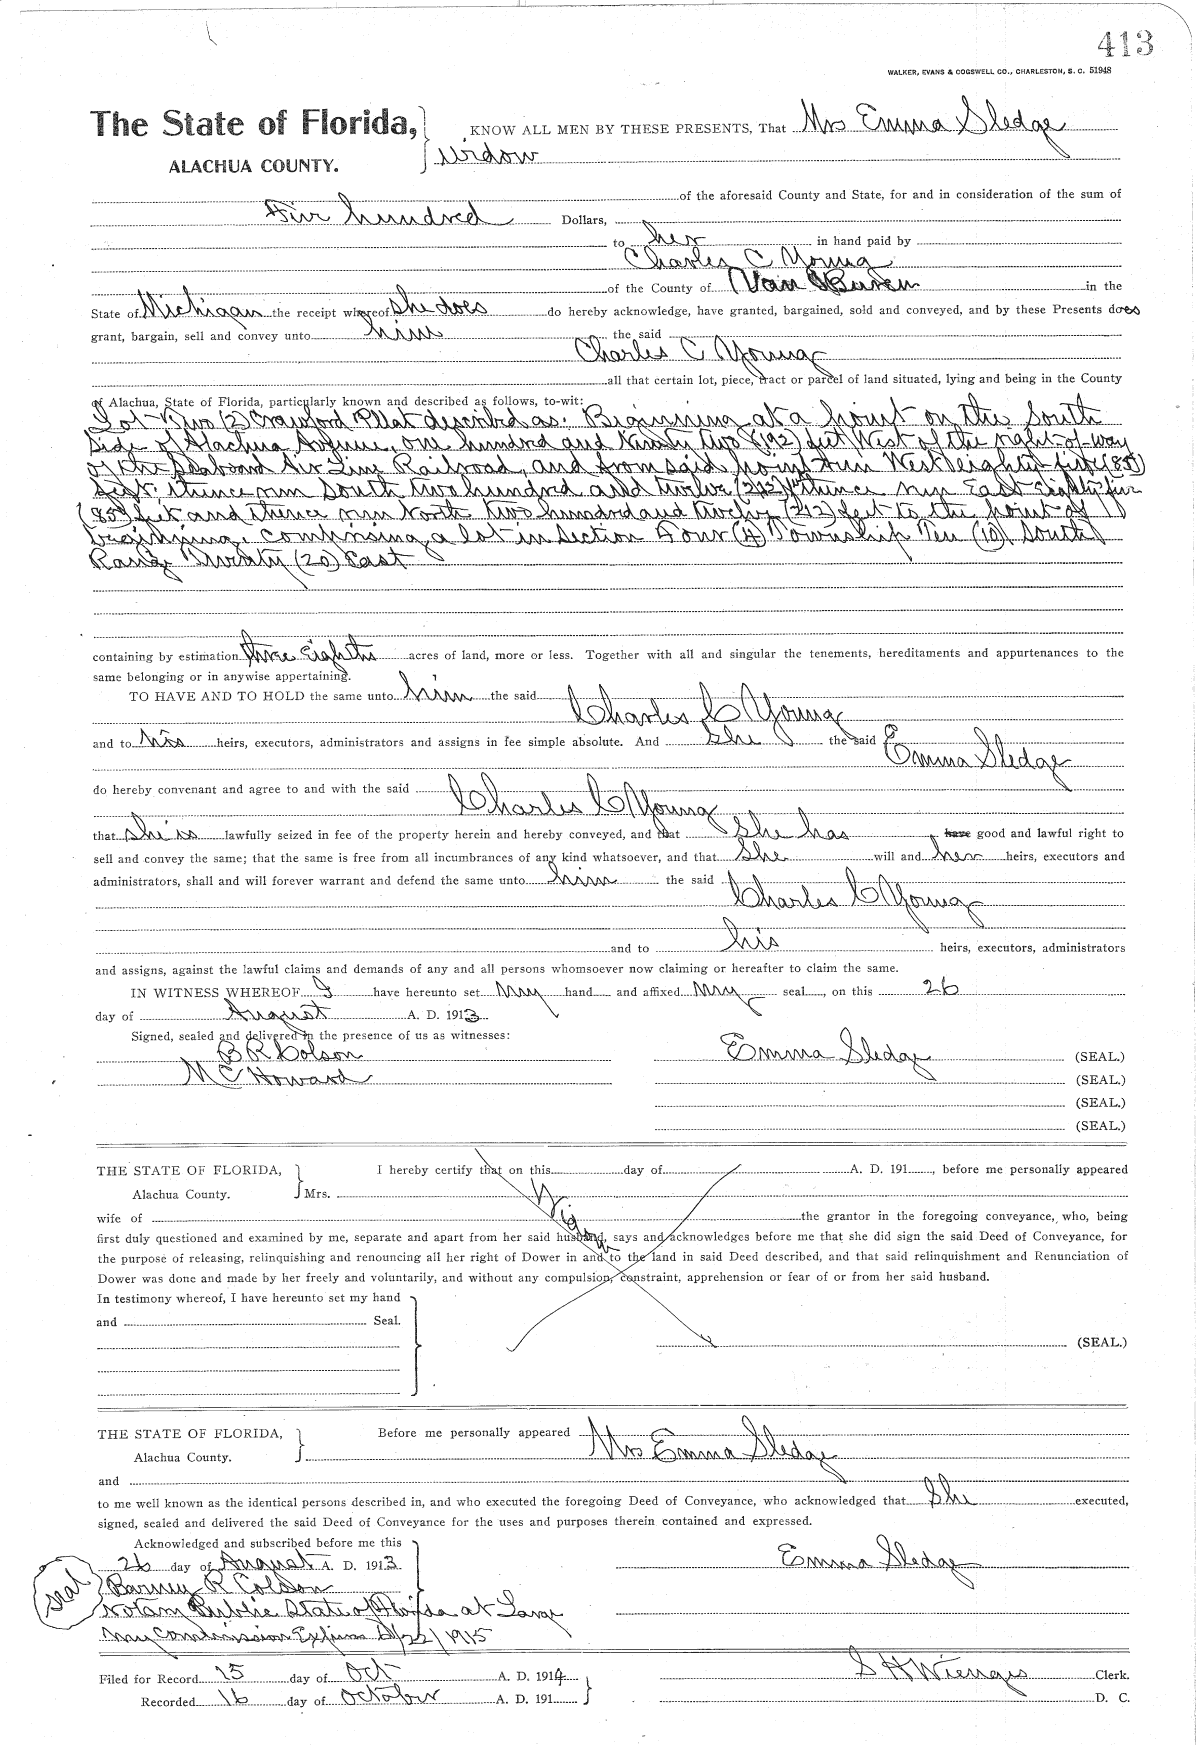 413
WALKER, EVANS & COGSWELL CO., CHARLESTON, S. C. 51948
The State of Florida, KNOW ALL MEN BY THESE PRESENTS, That Mrs Emma Sledge
ALACHUA COUNTY. widow
of the aforesaid County and State, for and in consideration of the sum of
Five hundred Dollars,
to her in hand paid by
Charles C Young
of the County of Van Buren in the
State of Michigan the receipt whereof she does do hereby acknowledge, have granted, bargained, sold and conveyed, and by these Presents does
grant, bargain, sell and convey unto him the said
Charles C Young
all that certain lot, piece, tract or parcel of land situated, lying and being in the County
of Alachua, State of Florida, particularly known and described as follows, to-wit:
Lot Two (2) Crawford Plat described as: Beginning at a point on the South
Side of Alachua Avenue, one hundred and Ninety two (192) feet West of the right-of-way
of the Seaboard Air Line Railroad, and from said point run West eighty-five (85)
feet: thence run South two hundred and twelve (212) ft thence run East Eighty five
(85) feet and thence run North two hundred and twelve (212) feet to the point of
beginning. Comprising a lot in Section Four (4) Township Ten (10) South
Range Twenty (20) East
containing by estimation three Eighths acres of land, more or less. Together with all and singular the tenements, hereditaments and appurtenances to the
same belonging or in anywise appertaining.
TO HAVE AND TO HOLD the same unto him the said
Charles C Young
and to his heirs, executors, administrators and assigns in fee simple absolute. And she the said
Emma Sledge
do hereby convenant and agree to and with the said
Charles C Young
that she is lawfully seized in fee of the property herein and hereby conveyed, and that she has have good and lawful right to
sell and convey the same; that the same is free from all incumbrances of any kind whatsoever, and that She will and her heirs, executors and
administrators, shall and will forever warrant and defend the same unto him the said
Charles C Young
and to his heirs, executors, administrators
and assigns, against the lawful claims and demands of any and all persons whomsoever now claiming or hereafter to claim the same.
IN WITNESS WHEREOF I have hereunto set my hand and affixed my seal, on this 26
day of August A. D. 1913
Signed, sealed and delivered in the presence of us as witnesses:
B R Colson Emma Sledge (SEAL.)
M C Howard (SEAL.)
(SEAL.)
(SEAL.)
THE STATE OF FLORIDA, I hereby certify that on this day of A. D. 191 , before me personally appeared
Alachua County. Mrs.
Widow
wife of the grantor in the foregoing conveyance, who, being
first duly questioned and examined by me, separate and apart from her said husband, says and acknowledges before me that she did sign the said Deed of Conveyance, for
the purpose of releasing, relinquishing and renouncing all her right of Dower in and to the land in said Deed described, and that said relinquishment and Renunciation of
Dower was done and made by her freely and voluntarily, and without any compulsion, constraint, apprehension or fear of or from her said husband.
In testimony whereof, I have hereunto set my hand
and Seal.
(SEAL.)
THE STATE OF FLORIDA, Before me personally appeared Mrs Emma Sledge
Alachua County.
and
to me well known as the identical persons described in, and who executed the foregoing Deed of Conveyance, who acknowledged that She executed,
signed, sealed and delivered the said Deed of Conveyance for the uses and purposes therein contained and expressed.
Acknowledged and subscribed before me this
26 day of August A. D. 1913 Emma Sledge
seal
Barney R Colson
Notary Public State of Florida at Large
My Commission Expires /22/1915
Filed for Record 15 day of Oct A. D. 1914 S H Wienges Clerk.
Recorded 16 day of October A. D. 191 D. C.